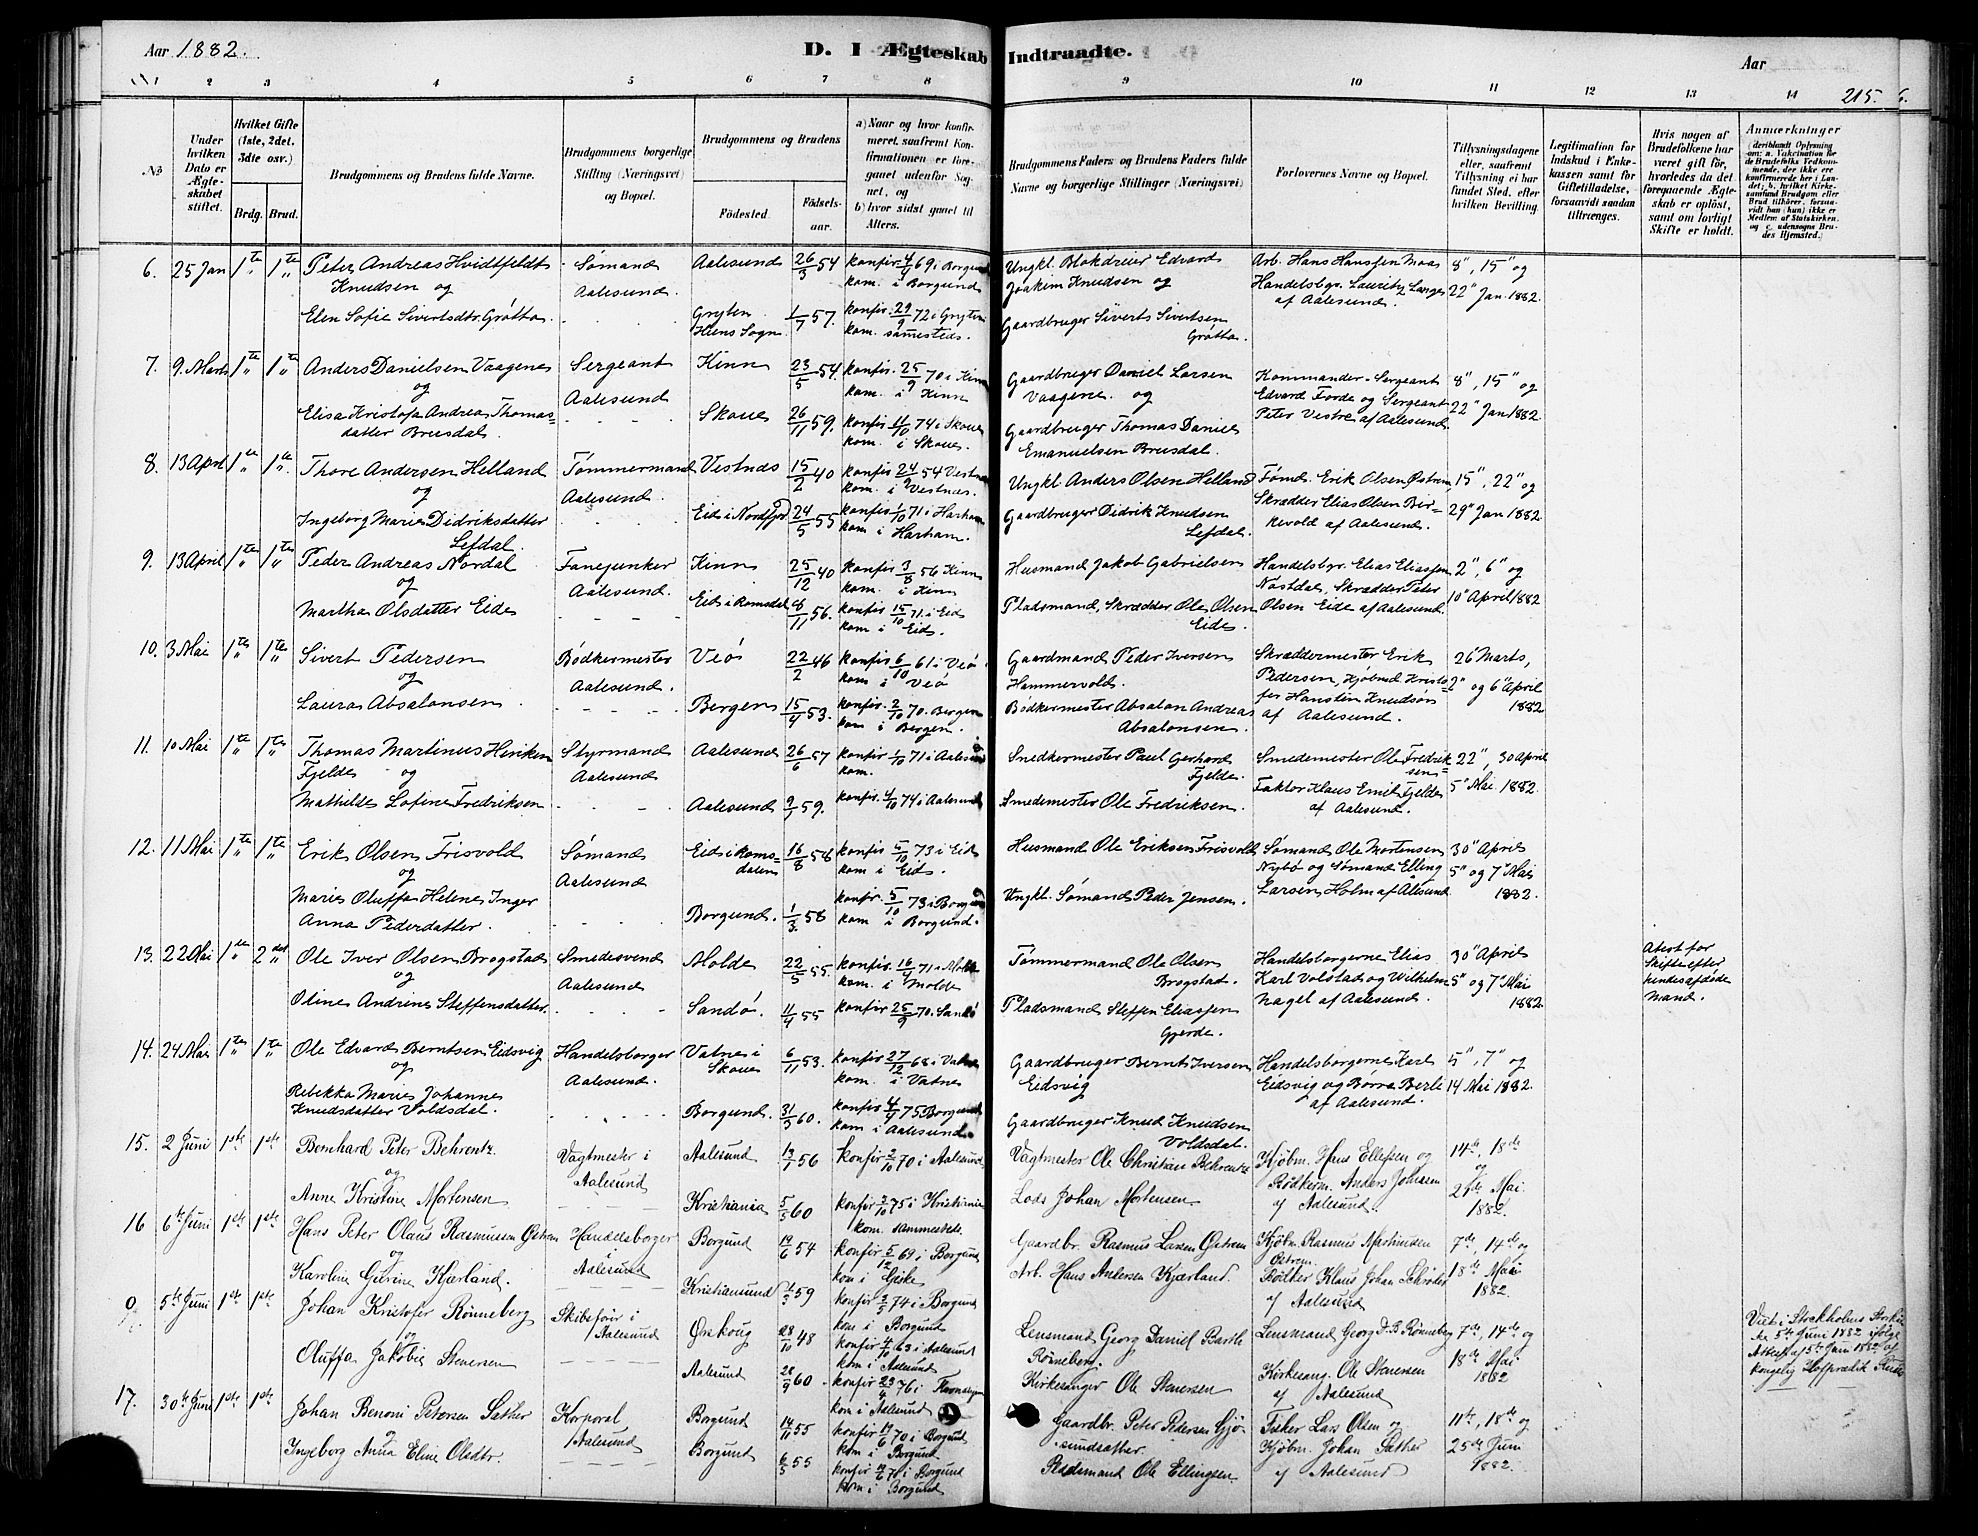 Aar 1882.
D. I Ægteskab Indtraadte.
Aar
215.
1 2 3 4 5 6 7 8 9 10 11 12 13 14
No
Under hvilken Dato er Ægteskabet stiftet.
Hvilket Gifte (1ste, 2det. 3die osv.)
Brdg. Brud.
Brudgommens og Brudens fulde Navne.
Brudgommens borgerlige Stilling (Næringsvei) og Bopæl.
Brudgommens og Brudens
Födested.
Födselsaar.
a) Naar og hvor konfirmeret, saafremt Konfirmationen er foregaaet udenfor Sognet, og
b) hvor sidst gaaet til Alters.
Brudgommens Faders og Brudens Faders fulde Navne og borgerlige Stillinger (Næringsvei)
Forlovernes Navne og Bopæl.
Tillysningsdagene eller, saafremt Tillysning ei har fundet Sted, efter hvilken Bevilling.
Legitimation for Indskud i Enkekassen samt for Giftetilladelse, forsaavidt saadan tiltrænges.
Hvis nogen af Brudefolkene har været gift för, hvorledes da det foregaaende Ægteskab er oplöst, samt om lovligt Skifte er holdt.
Anmærkninger (deriblandt Oplysning om: a. Vakcination for de Brudefolks Vedkommende, der ikke ere konfirmerede her i Landet; b. hvilket Kirkesamfund Brudgom eller Brud tilhörer, forsaavidt han (hun) ikke er Medlem af Statskirken, og c. udensogns Brudes Hjemsted.)
6. 25 Jan 1te 1te Peter Andreas Hvidtfeldt Knudsen og Sømand Aalesund. Aalesund 26/3 54 konfir. 4/4 69 i Borgund kom. i Borgund Ungkl. Blokdreier Edvard Joakim Knudsen og Arb. Hans Hanssen Moa Handelsbgr. Lauritz Langes af Aalesund. 8", 15" og 22" Jan. 1882.
Elen Sofie Sivertsdtr. Grøtta. Gryten Hens Sogn 1/7 57. konfir. 29/9 72 i Gryten kom. samesteds. Gaardbruger Siverts Sivertsen Grøtta.
7. 9. Marts 1te 1te Anders Danielsen Vaagene og Sergeant Aalesund Kinn 23/5 54. konfir. 25/9 70 i Kinn kom. i Kinn Gaardbruger Daniel Larsen Vaagene. og Kommander-Sergeant Edvard Førde og Sergeant Peter Vestre af Aalesund. 8", 15" og 22" Jan 1882.
Elisa Kristofa Andrea Thomasdatter Brusdal. Skoue 26/11 59. konfir. 11/10 74 i Skoue kom. i Skoue. Gaardbruger Thomas Daniel Emanuelsen Brusdal.
8. 13 April 1te 1te Thore Andersen Helland og Tømmermand Aalesund. Vestnes 15/2 40 konfir 24/9 54 Vestnes kom. i Vestnes. Ungkl. Anders Olsen Helland Tømd. Erik Olsen Østrem, Skrædder Elias Olsen Birkevold af Aalesund. 15", 22" og 29" Jan 1882.
Ingeborg Marie Didriksdatter Lefdal. Eid i Nordfjord 24/5 55 konfir. 1/10 71 i Harham kom i Harham. Gaardbruger Didrik Knudsen Lefdal.
9. 13 April 1te 1te Peder Andreas Nordal og Fanejunker Aalesund. Kinn 25/12 40 konfir 3/8 56 Kinn kom. i Kinn Husmand Jakob Gabrielsen Handelsbgr. Elias Eliassen Nøstdal, Skrædder Peter Olsen Eide af Aalesund. 2", 6" og 10" April 1882
Martha Olsdatter Eide Eid i Romsdal 8/11 56. konfir 15/10 71 i Eid kom i Eid. Pladsmand, Skrædder Ole Olsen Eide.
10. 3 Mai 1te 1te Sivert Pedersen og Bødkermester Aalesund. Veø 22/2 46 konfir 6/10 61 i Veø. kom i Veø Gaardmand Peder Iversen Hammervold. Skræddermester Erik Pedersen, Kjøbmd Kristofer Hanstin Knudsøn af Aalesund. 26 Marts, 2" og 6" April 1882
Laura Absalonsen. Bergen 15/4 53. konfir. 2/10 70. Bergen kom. i Bergen. Bødkermester Absalon Andreas Absalonsen.
11. 10 Mai 1te 1te Thomas Martinus Heniken Fjelde og Styrmand Aalesund Aalesund 26/6 57 konfir 1/10 71 i Aalesund kom. Snedkermester Paul Gerhard Fjelde. Smedemester Ole Fredriksen Faktor Klaus Emil Fjelde af Aalesund. 22", 30 April 5" Mai 1882.
Mathilde Lofine Fredriksen Aalesund 59. konfir. 4/10 74 i Aalesund Smedemester Ole Fredriksen.
12. 11 Mai 1te 1te Erik Olsen Frisvold og Sømand Aalesund Eid i Romsdalen 16/8 58 konfir 5/10 73 i Eid kom i Eid. Husmand Ole Eriksen Frisvold Sømand Ole Mortensen Nybø og Sømand Elling Larsen Holm af Ålesund 30" April 5" og 7" Mai 1882.
Marie Oluffa Helene Inger Anna Pedersdatter. Borgund. 1/3 58 konfir. 5/10 73 i Borgund kom i Borgund. Ungkl. Sømand Peder Jensen.
13. 22 Mai 1te 2det Ole Iver Olsen Brogstad og Smedesvend Aalesund Molde 22/5 55 konfir. 16/4 71 i Molde kom. i Molde Tømmermand Ole Olsen Brogstad. Handelsborgerne Elias Karl Volstad og Wilhelm Nagel af Aalesund. 30" April 5" og 7" Mai 1882. Atest for Skifte efter hendes afdøde Mand.
Oline Andrine Steffensdatter. Sandø. 11/4 55 konfir 25/9 70. Sandø Pladsmand Steffen Eliassen Gjerde.
14. 24 Mai 1te 1te Ole Edvard Berntsen Eidsvig og Handelsborger Aalesund. Vatne i Skoue 6/11 53. konfir 27/12 68 i Vatne kom. i Vatne Gaardbruger Bernt Iversen Eidsvig Handelsborgerne Karl Eidsvig og Børre Berli af Aalesund. 5", 7" og 14 Mai 1882.
Rebekka Marie Johanne Knudsdatter Voldsdal. Borgund. 31/3 60. konfir 4/4 75 Borgund kom i Aalesund. Gaardbruger Knud Knudsen Voldsdal.
15. 2 Juni 1ste 1ste Bernhard Peter Behrentz. og Vagtmester i Aalesund Aalesund 13/1 56 Konfir 2/10 70 i Aalesund. Vagtmester Ole Christian Behrentz Kjøbm. Hans Ellefsen og Bødkerm. Anders Johnsen af Aalesund. 14de, 18de og 21de Mai 1882.
Anne Kristine Mortensen Kristiania 5/5 60 konfir 3/10 75 i Kristiania kom. sammesteds. Lods Johan Mortensen
16 6te Juni 1ste 1ste Hans Peter Olaus Rasmussen Østrem og Handelsborger i Aalesund Borgund 19/6 54 konfir 5/12 69 i Borgund kom i Giske Gaardbr. Rasmus Larsen Østrem Kjøbm. Rasmus Martinusen Østrem. Bødker Klaus Johan Schrøder af Aalesund 7de, 14de og 18de Mai 1882.
Karoline Gurine Kjærland. Kristiansund 1/3 59 konfir 3/5 74 i Borgund kom i Borgund Arb. Hans Andersen Kjærland.
5te Juni 1ste 1ste Johan Kristofer Rönneberg og Skibsfører i Aalesund Ørskoug 28/10 48 konfir 4/10 63 i Aalesund kom i Aalesund Lensmand Georg Daniel Barth Rönneberg. Lensmand Georg D. B. Rönneberg Kirkesang. Ole Stenersen af Aalesund 7de, 14de og 18de Mai 1882 Viet i Stockholms Storkirke 5te Juni 1882 ifølge Attest af 5te Juni 1882 af kongelig Hofprædik
Oluffa Jakobia Stenersen Aalesund 28/9 60 konfir 23/4 76 i kom i Aalesund Kirkesanger Ole Stenersen
17. 30te Juni 1ste 1ste Johan Benoni Petersen Sather og Korporal Aalesund Borgund 14/11 55 konfir 19/6 70 i Borgund kom i Borgund Gaardbr. Peter Pedersen Gjøsundsather. Fisker Lars Olsen og Kjøbm. Johan Sather af Aalesund 11te, 18de og 25de Juni 1882.
Ingeborg Anna Eline Olsdtr. Borgund 6/5 55 konfir 71 i Borgund kom i Borgund Pladsmand Ole Ellingsen.